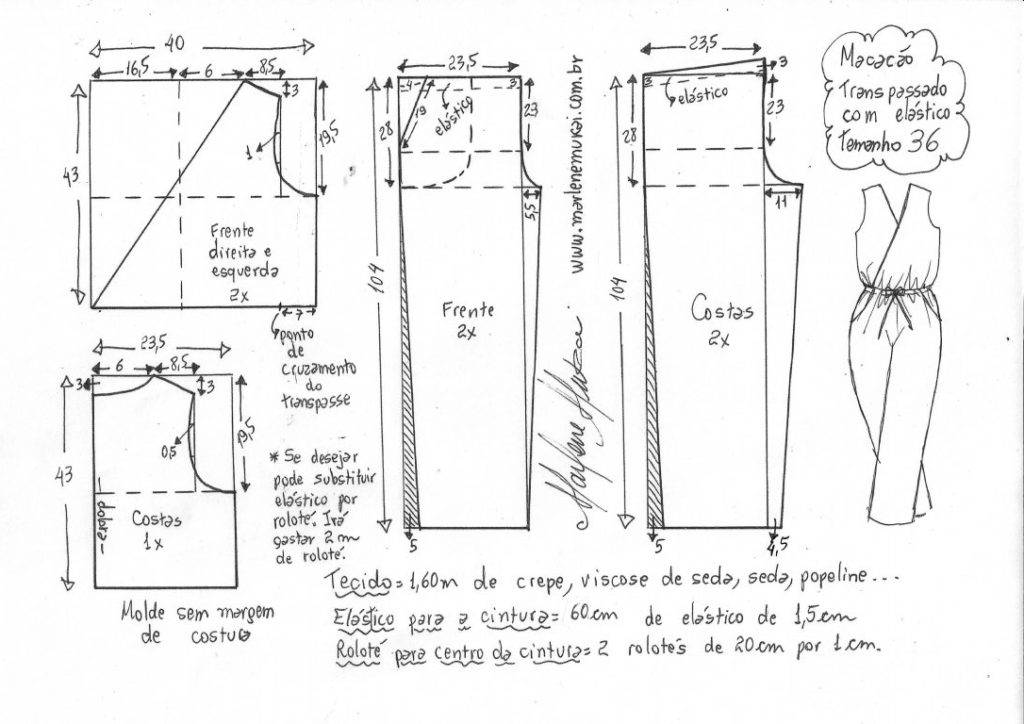 40
16,5
6
8,5
3
19,5
1
43
Frente
direita e
esquerda
2x
7
ponto
de
cruzamento
do
transpasse
23,5
6
8,5
3
3
19,5
0,5
43
dobra
Costas
1x
Molde sem margem
de costura
* Se desejar
pode substituir
elástico por
roloté. Irá
gastar 2m
de roloté.
23,5
4
3
19
elástico
28
23
5,5
104
Frente
2x
5
www.marlenemukai.com.br
Marlene Mukai
23,5
3
3
elástico
28
23
11
104
Costas
2x
5
4,5
Macacão
Transpassado
com elástico
Tamanho 36
Tecido = 1,60m de crepe, viscose de seda, seda, popeline...
Elástico para a cintura = 60cm de elástico de 1,5cm
Roloté para centro da cintura = 2 rolotés de 20cm por 1cm.